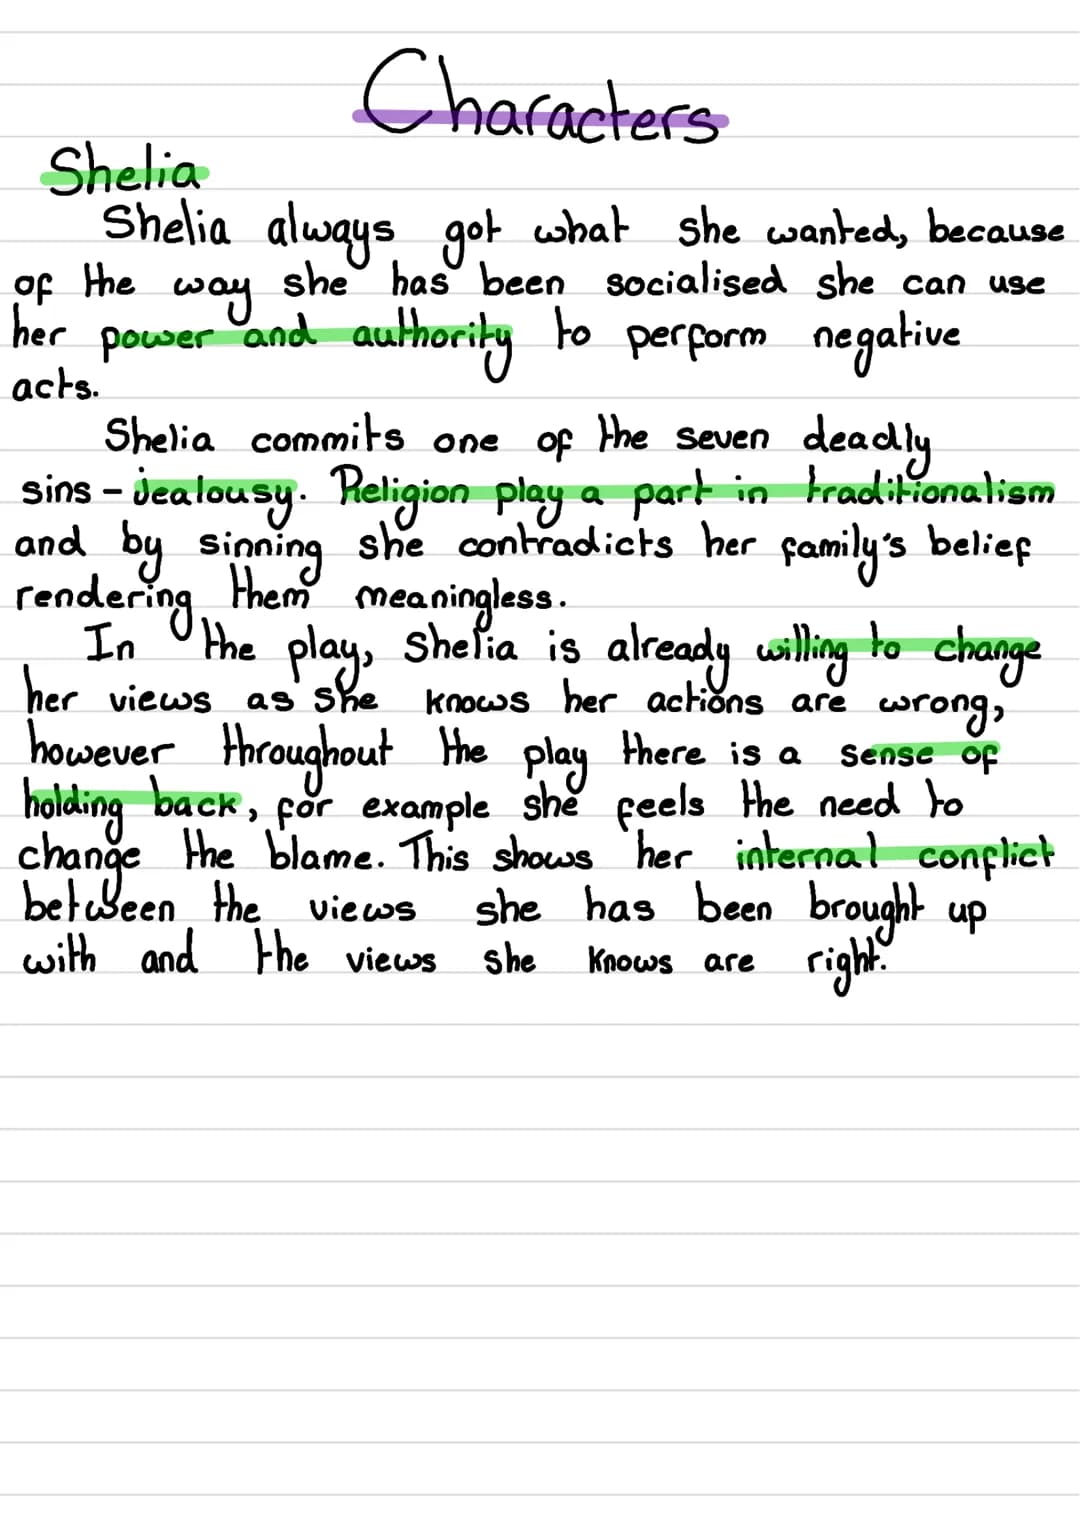 Characters
Shelia
Shelia always got what she wanted, because
of the way she has been socialised she can use
her power and authority to perform negative
acts.
Shelia commits one of the seven deadly
sins - jealousy. Religion play a part in traditionalism
and by sinning she contradicts her family's belief
rendering them meaningless.
In the play, Shelia is already willing to change
her views as she knows her actions are wrong,
however throughout the play there is a sense of
holding back, for example she feels the need to
change the blame. This shows her internal conflict
between the views she has been brought up
with and the views she knows are right.